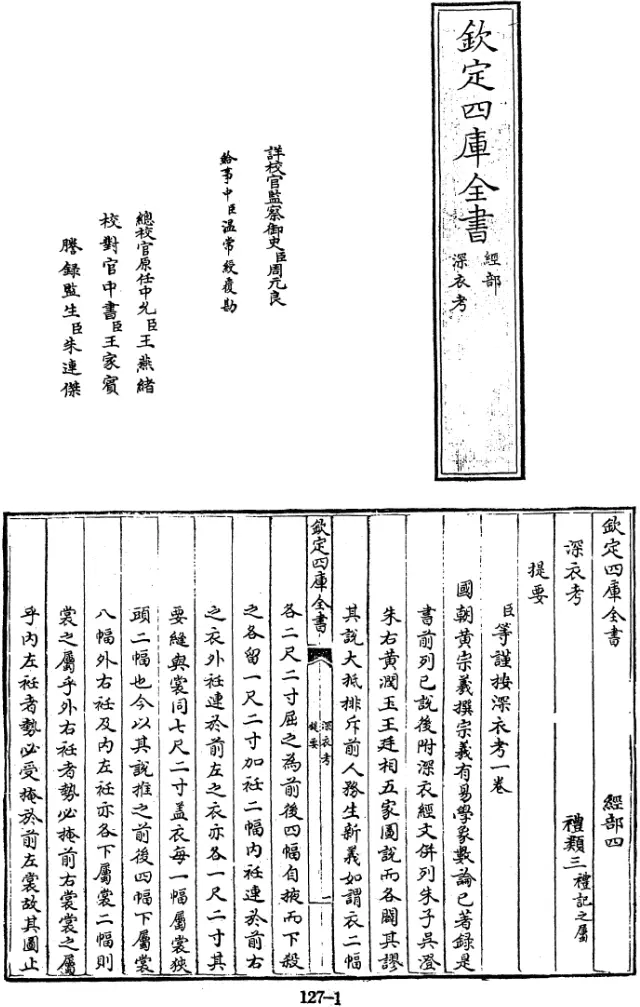 欽定四庫全書
經部
深衣考
詳校官監察御史臣周元良
給事中臣温常綬覆勘
總校官原任中允臣王燕緒
校對官中書臣王家賓
謄錄監生臣朱連傑
欽定四庫全書
經部四
深衣考
禮類三禮記之屬
提要
臣等謹按深衣考一卷
國朝黃宗羲撰宗羲有易學象數論已著錄是
書前列已說後附深衣經文併列朱子吳澄
朱右黃潤玉王廷相五家圖說而各闢其謬
其說大抵排斥前人務生新義如謂衣二幅
欽定四庫全書
深衣考
提要
一
各二尺二寸屈之為前後四幅自掖而下殺
之各留一尺二寸加衽二幅內衽連於前右
之衣外衽連於前左之衣亦各一尺二寸其
要縫與裳同七尺二寸盖衣每一幅屬裳狹
頭二幅也今以其說推之前後四幅下屬裳
八幅外右衽及內左衽亦各下屬裳二幅則
裳之屬乎外右衽者勢必掩前右裳裳之屬
乎內左衽者勢必受掩於前左裳故其圖止
127-1